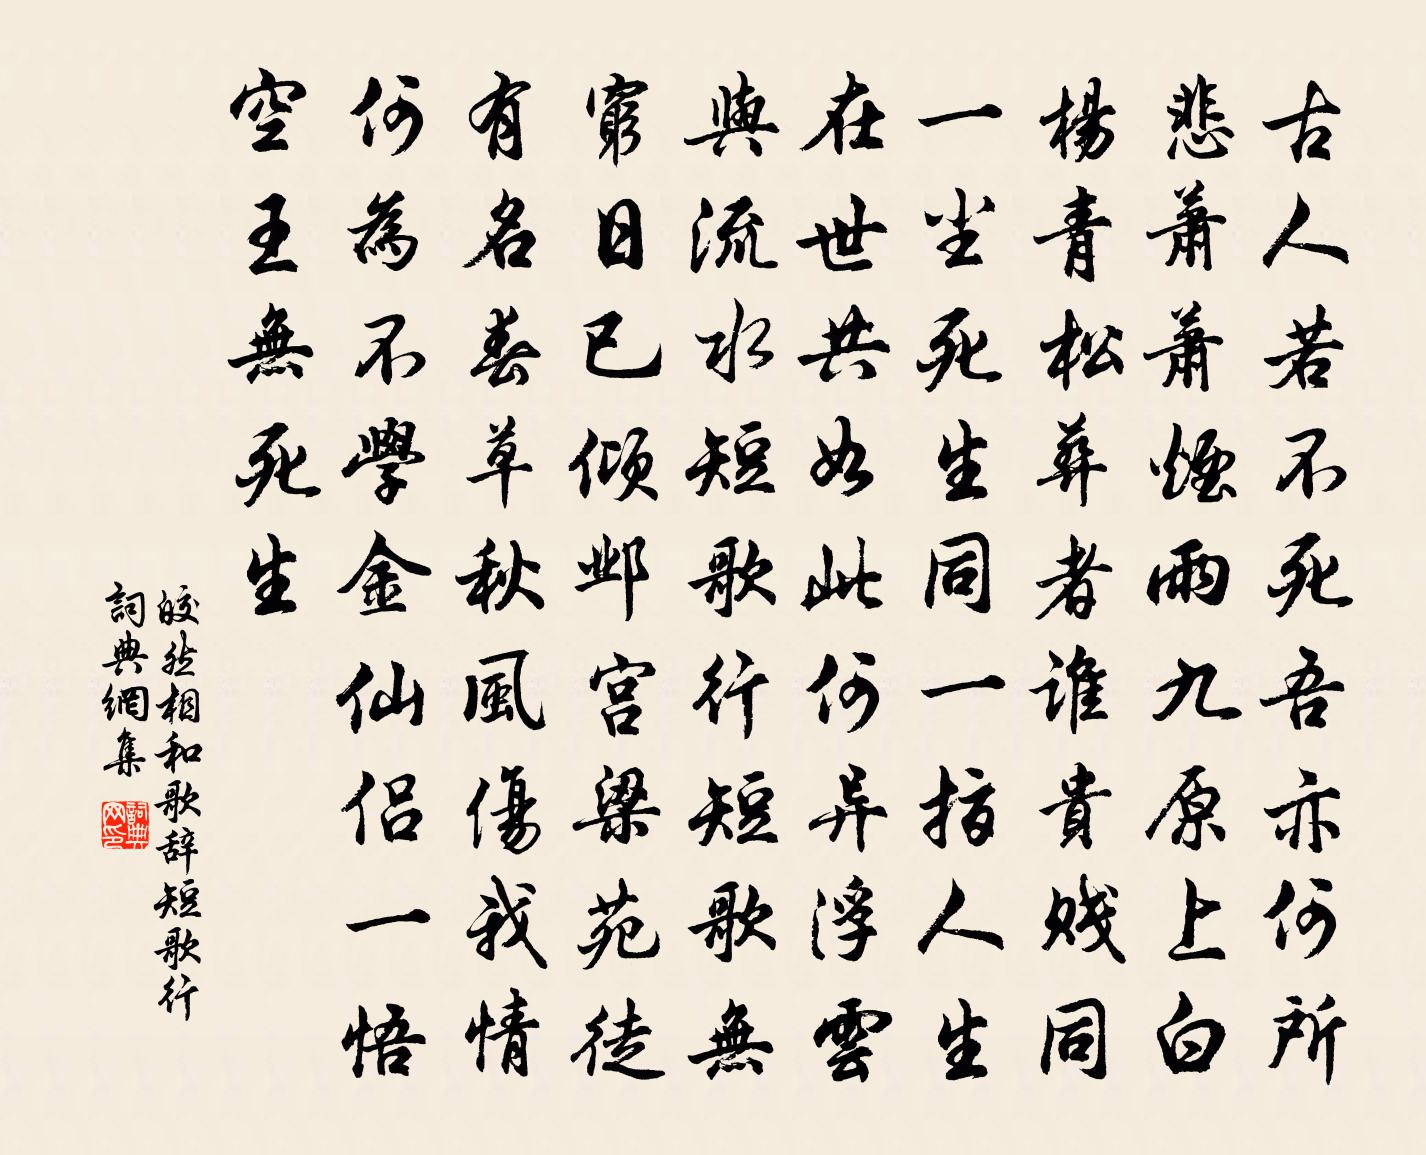 古人若不死吾亦何所
悲萧萧煙雨九原上白
楊青松葬者谁貴贱同
一尘死生同一指人生
在世共如此何异浮雲
與流水短歌行短歌無
窮日已倾邺宫梁苑徒
有名春草秋風傷我情
何為不學金仙侣一悟
空王無死生
皎然相和歌辞短歌行
詞典網集
詞典网印